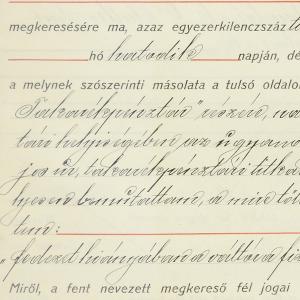 megkeresésére ma, azaz egyezerkilenczszáz
hó hatodik napján, dé
a melynek szószerinti másolata a tulsó oldalon
Takarékpénztár" részén,
tári helyiségében az ugyana
jos ur, takarékpénztári titká
lyesen bemutattam, a mire töl
tem:
"fedezet hiányában a váltóra fiz
Miről, a fent nevezett megkereső fél jogai